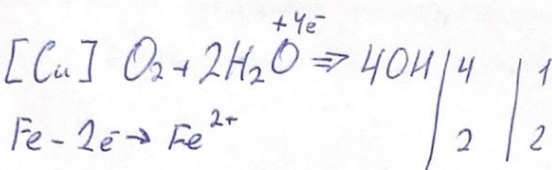 [Cu] O₂ + 2H₂O +4ē ⇒ 4OH | 4 | 1
Fe - 2ē → Fe²⁺ | 2 | 2